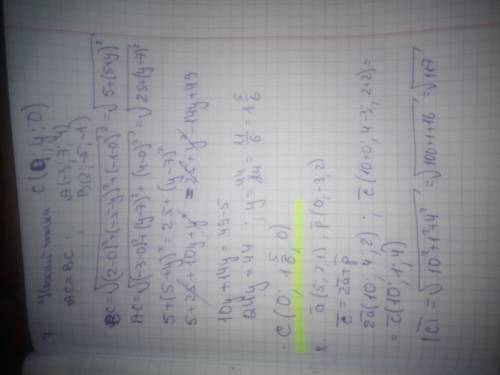 C(0; y; 0)
AC = BC
A(-3; 7; 4)
B(2; -5; -1)
BC = √(2-0)²+(-5-y)²+(-1-0)² = √5+(5+y)²
AC = √(-3-0)²+(y-7)²+(4-0)² = √25+(y-7)²
5+(5+y)² = 25+(y-7)²
5+25+10y+y² = 25+y²-14y+49
10y+14y = 49-5
24y = 44; y = 44/24 = 11/6 = 1 5/6
C(0; 1 5/6; 0)
2. a(5, 2, 1), p(0, -3; 2)
c = 2a+p
2a(10; 4; 2); c(10+0; 4-3; 2+2) =
= c(10; 1; 4)
|c| = √10²+1²+4² = √100+1+16 = √117